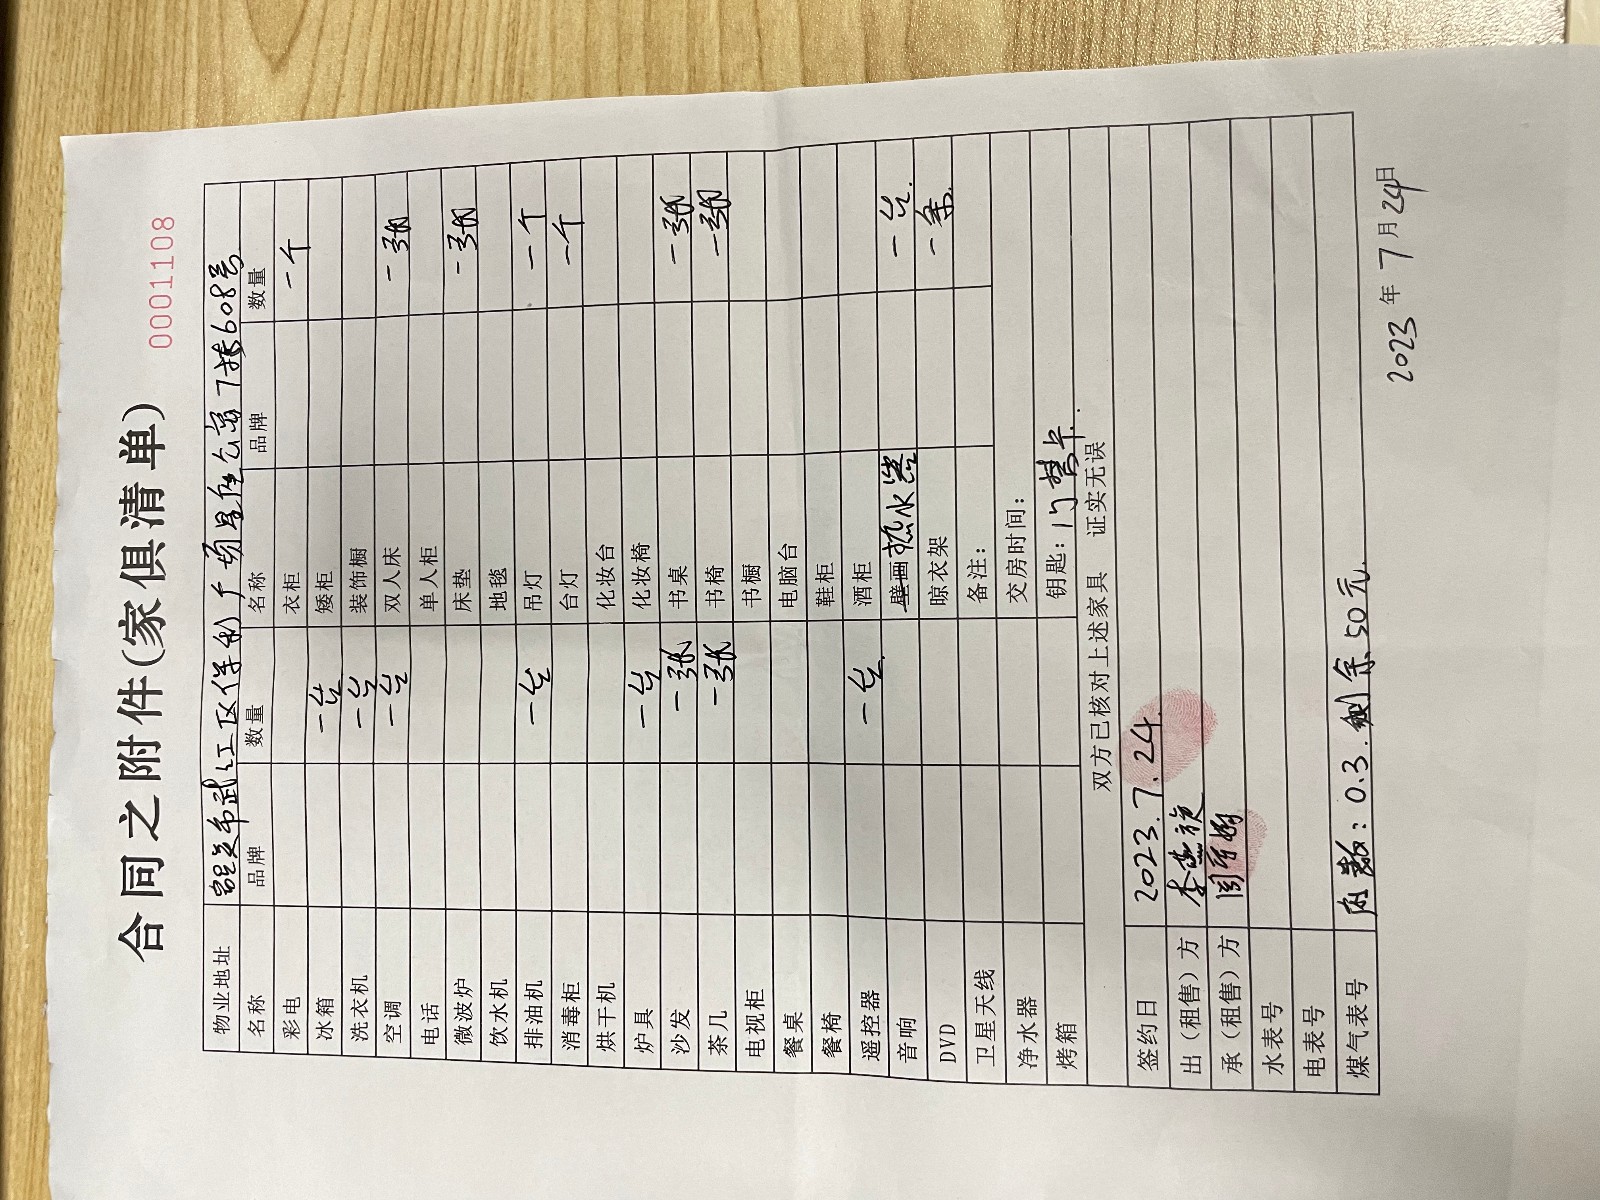 合同之附件(家俱清单)
0001108
物业地址 韶关市武江区保利广场星座公寓7栋608号
名称 品牌 数量 名称 品牌 数量
彩电 衣柜 一个
冰箱 一台 矮柜
洗衣机 一台 装饰橱
空调 一台 双人床 一张
电话 单人柜
微波炉 床垫 一张
饮水机 地毯
排油机 一台 吊灯 一个
消毒柜 台灯 一个
烘干机 化妆台
炉具 一台 化妆椅
沙发 一张 书桌 一张
茶几 一张 书椅 一张
电视柜 书橱
餐桌 电脑台
餐椅 鞋柜
遥控器 一台 酒柜
音响 壁画 热水器 一台.
DVD 晾衣架 一条.
卫星天线 备注:
净水器 交房时间:
烤箱 钥匙: 门禁卡.
双方已核对上述家具 证实无误
签约日 2023.7.24.
出(租售)方
承(租售)方
水表号
电表号
煤气表号 : 0.3. 剩余50元.
2023 年 7 月 24 日